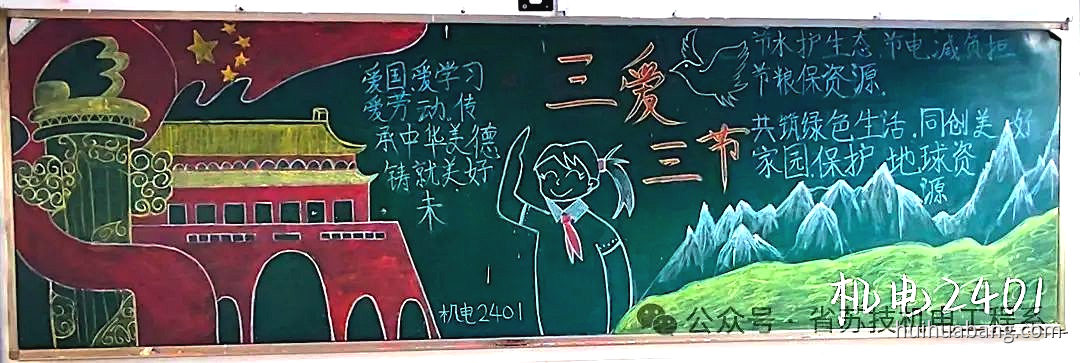 爱国,爱学习
爱劳动,传
承中华美德
铸就美好
未
三爱
三节
节水护生态 节电减负担
节粮保资源.
共筑绿色生活,同创美好
家园,保护地球资
源
机电2401
机电2401
公众号 · 省苏技机电工程系
huihuabang.com